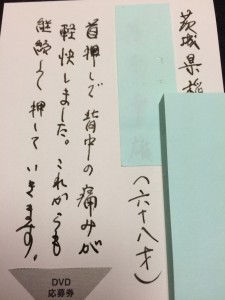 茨城県
(六十八才)
首押しで背中の痛みが
軽快しました。これからも
継続して押していきます。
DVD
応募券